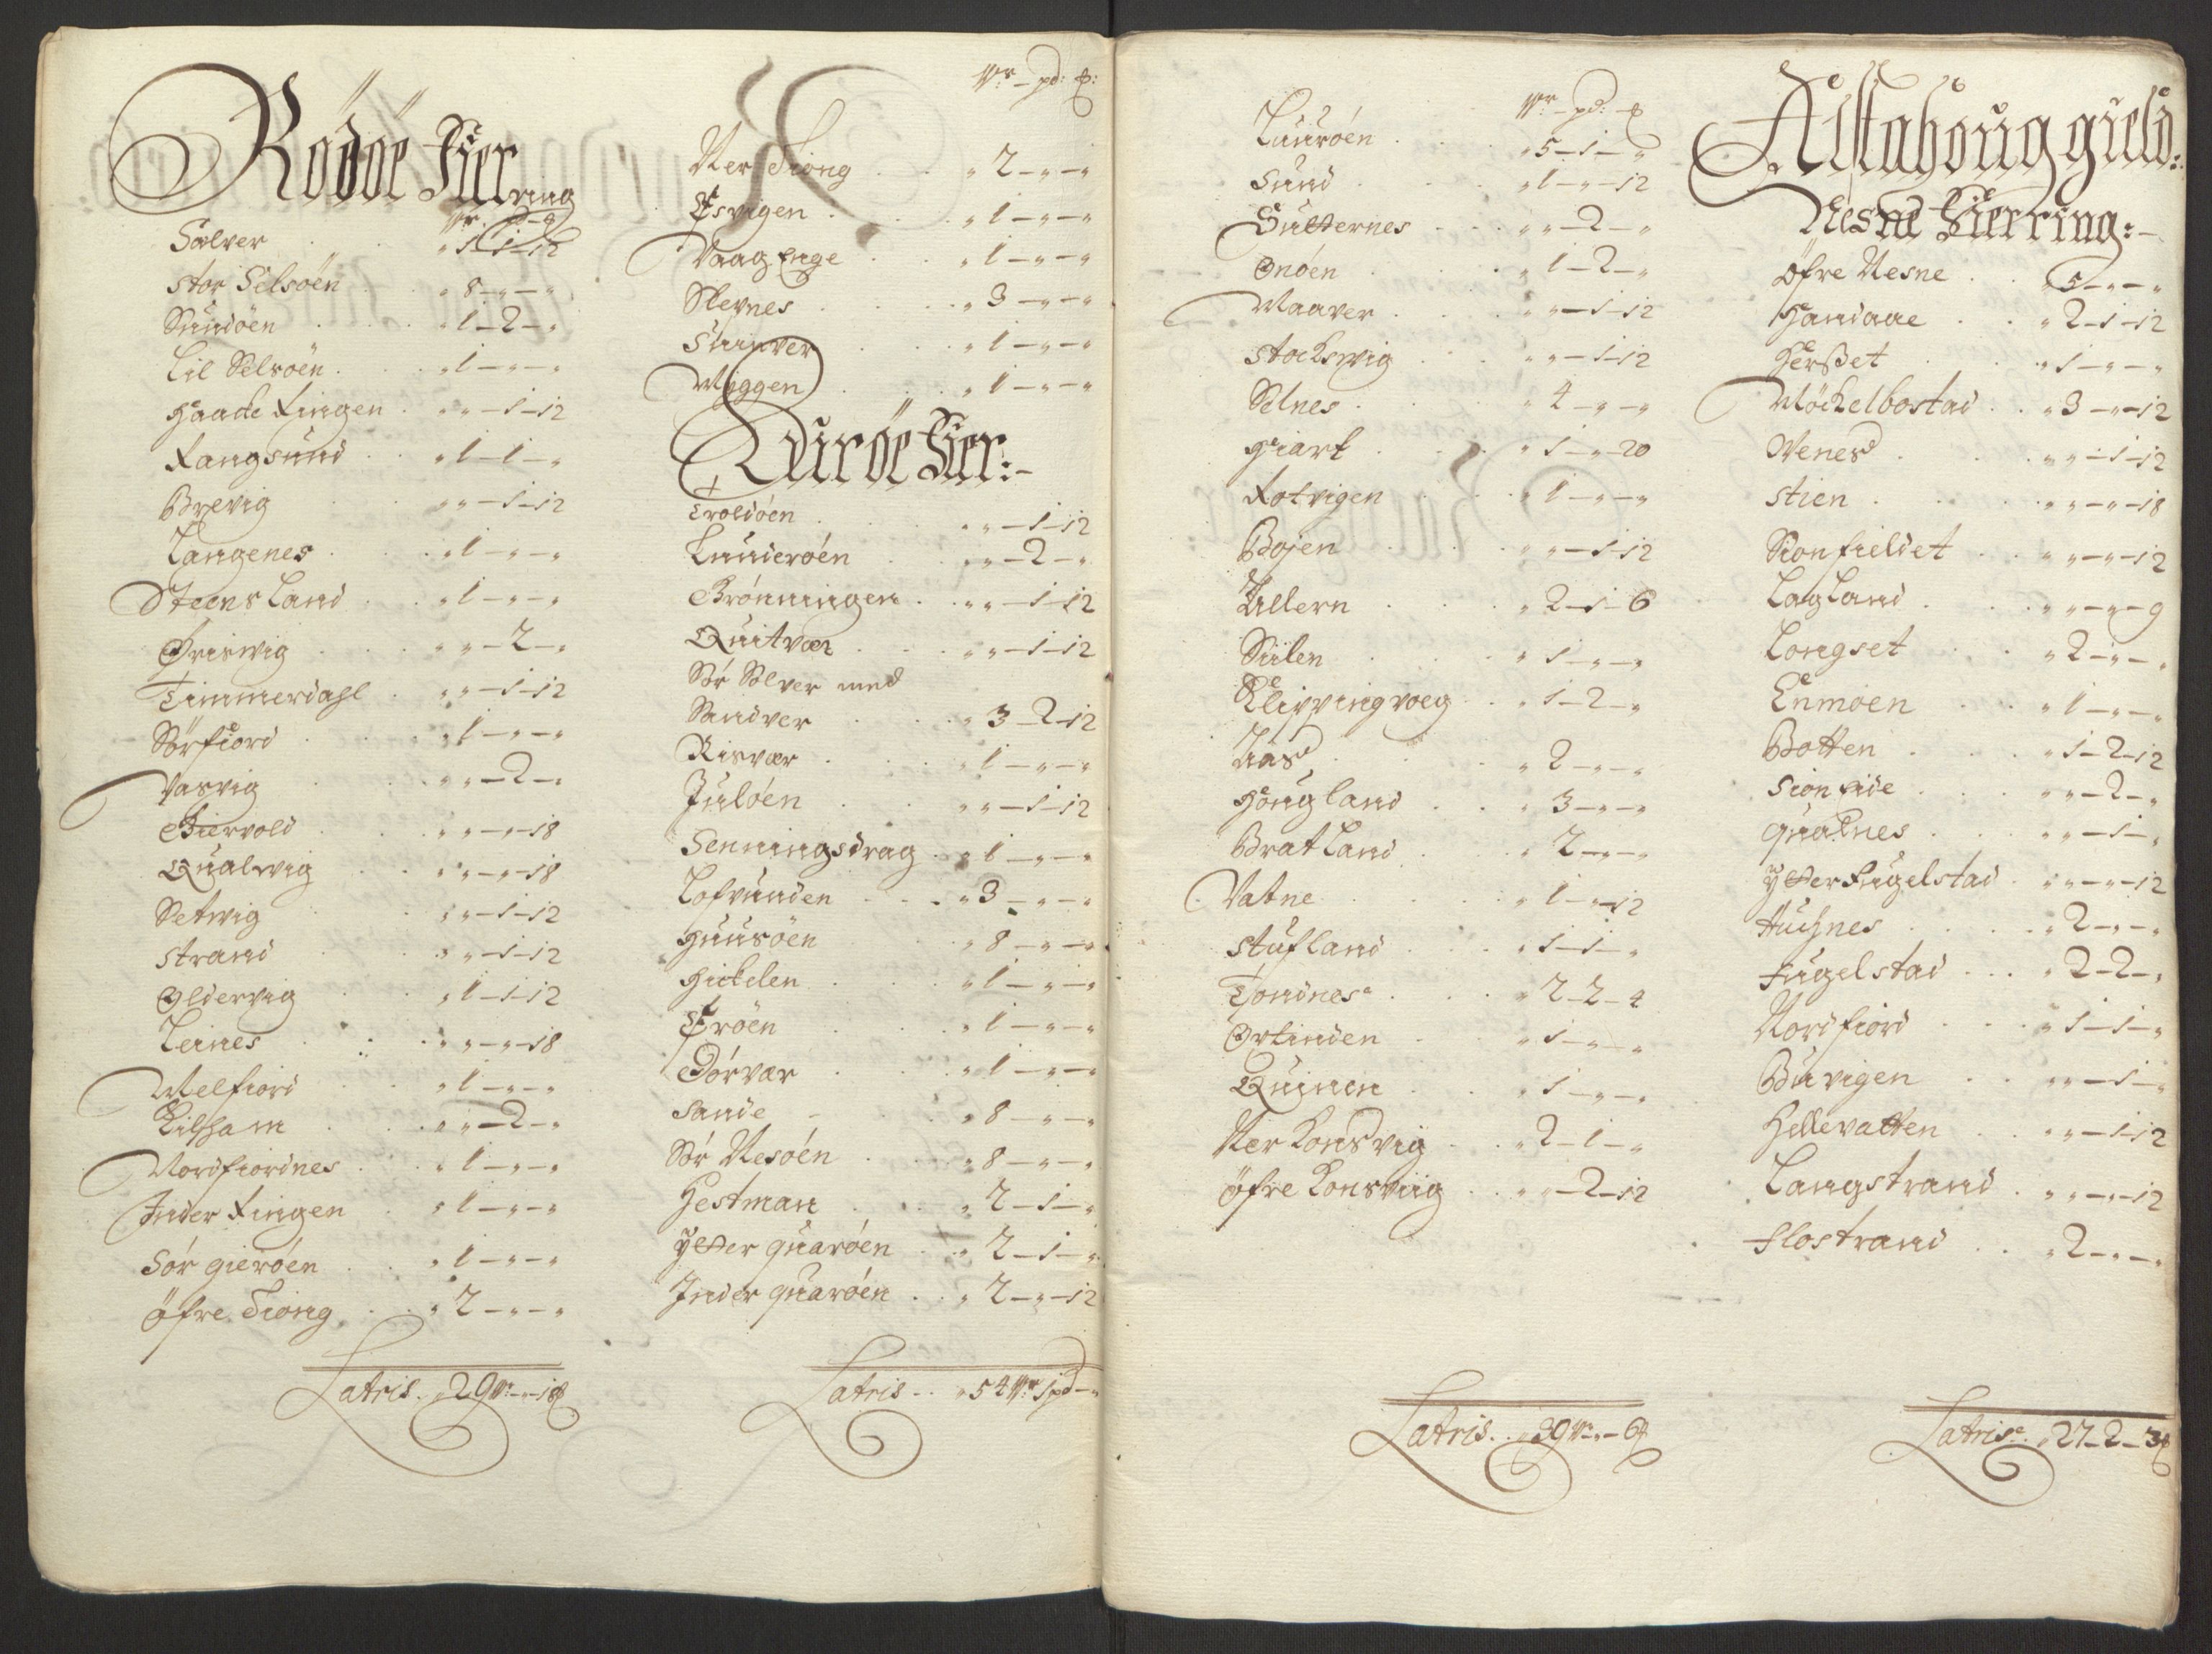 Rödöe Fier
ring
Wr - pd - ℔
Sølver . . „1-1-12
stor Selsöen . . „8-„-„
Sundöen . . „1-2-„
Lil Selsöen . . „1-„-„
Haacke Ringen . „„-1-12
Rangsund . . „1-1-„
Brevig . . „„-1-12
Langenes . . „1-„-„
Steensland . . „1-„-„
Øriswig . . „„-2-„
Timmerdahl . „„-1-12
Sörfiord . . „1-„-„
Vasvig . . „„-2-„
Biervold . . „„-„-18
Qualwig . . „„-„-18
Setwig . . „„-1-12
Strand . . „„-1-12
Oldervig . . „1-1-12
Leines . . „„-„-18
Melfiord . . „1-„-„
Kilham . . „„-2-„
Nordfiordnes . . „1-„-„
Inder Ringen . „1-„-„
Sör gieröen . . „1-„-„
öfre Tiong . . „2-„-„
Latris . „29 Wr-„-18℔
Wr - pd: ℔:
Ner Tiong . . „2-„-„
Esvigen . . „1-„-„
Vaag Enge . . „1-„-„
Slevnes . . „3-„-„
Skinver . . „1-„-„
Myggen . . „1-„-„
Luröe Fier:-
Troldöen . . „„-1-12
Lunderöen . . „„-2-„
Brönningen . . „„-1-12
Quitvær . . „„-1-12
Sör Solver med
Sandver . . „3-2-12
Risvær . . „1-„-„
Julöen . . „„-1-12
Senningsdrag . „1-„-„
Lofvunden . . „3-„-„
Huusöen . . „8-„-„
Hickelen . . „1-„-„
Eröen . . „1-„-„
Dörvær . . „1-„-„
Sande . . „8-„-„
Sör Nesöen . . „8-„-„
Hestman . . „2-1-„
ytter quaröen . „2-1-„
Inder quaröen . . „2-„-12
Latris . . „54 Wr 1pd-„
Wr - pd: ℔
Luuröen . . „5-1-„
Sund . . „1-„-12
Butternes . . „„-2-„
Onöen . . „1-2-„
Maaver . . „„-1-12
stockswig . . „„-1-12
Selnes . . „4-„-„
Hiart . . „1-„-20
Rotvigen . . „1-„-„
Bojen . . „„-1-12
Ullern . . „2-1-6
Siilen . . „1-„-„
Klippingvog . . „1-2-„
Aas . . „2-„-„
Hougland . . „3-„-„
Bratland . . „2-„-„
Vatne . . „1-„-12
Stufland . . „1-1-„
Tonnes . . „2-2-4
Ortinden . . „1-„-„
Quinen . . „1-„-„
Ner Konsvig . . „2-1-„
öfre Konsviig . . „„-2-12
Latris . . „39 Wr-„-6℔
Alstahoug gield:
Nesne Fierring:-
öfre Nesne . . „5-„-„
Handaae . . „2-1-12
Herßet . . „1-„-„
Möckelbostad . . „3-„-12
Venes . . „„-1-12
stien . . „„-„-18
Sionfieldet . . „„-„-12
Lagland . . „„-„-9
Longset . . „2-„-„
Enmoen . . „1-„-„
Botten . . „1-2-12
Sion Eide . . „„-2-„
qualnes . . „„-1-„
ytter Fugelstad . „„-„-12
Huuhnes . . „2-„-„
Fugelstad . . „2-2-„
Nordfiord . . „1-1-„
Buvigen . . „„-1-„
Hellevatten . . „„-1-12
Langstrand . „„-„-12
Flostrand . . „2-„-„
Latris . „27-2-3℔